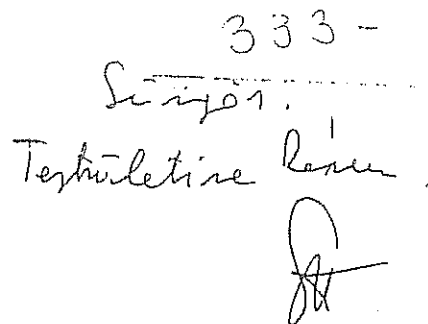 333-
Sürgős.
Testületire kérem.